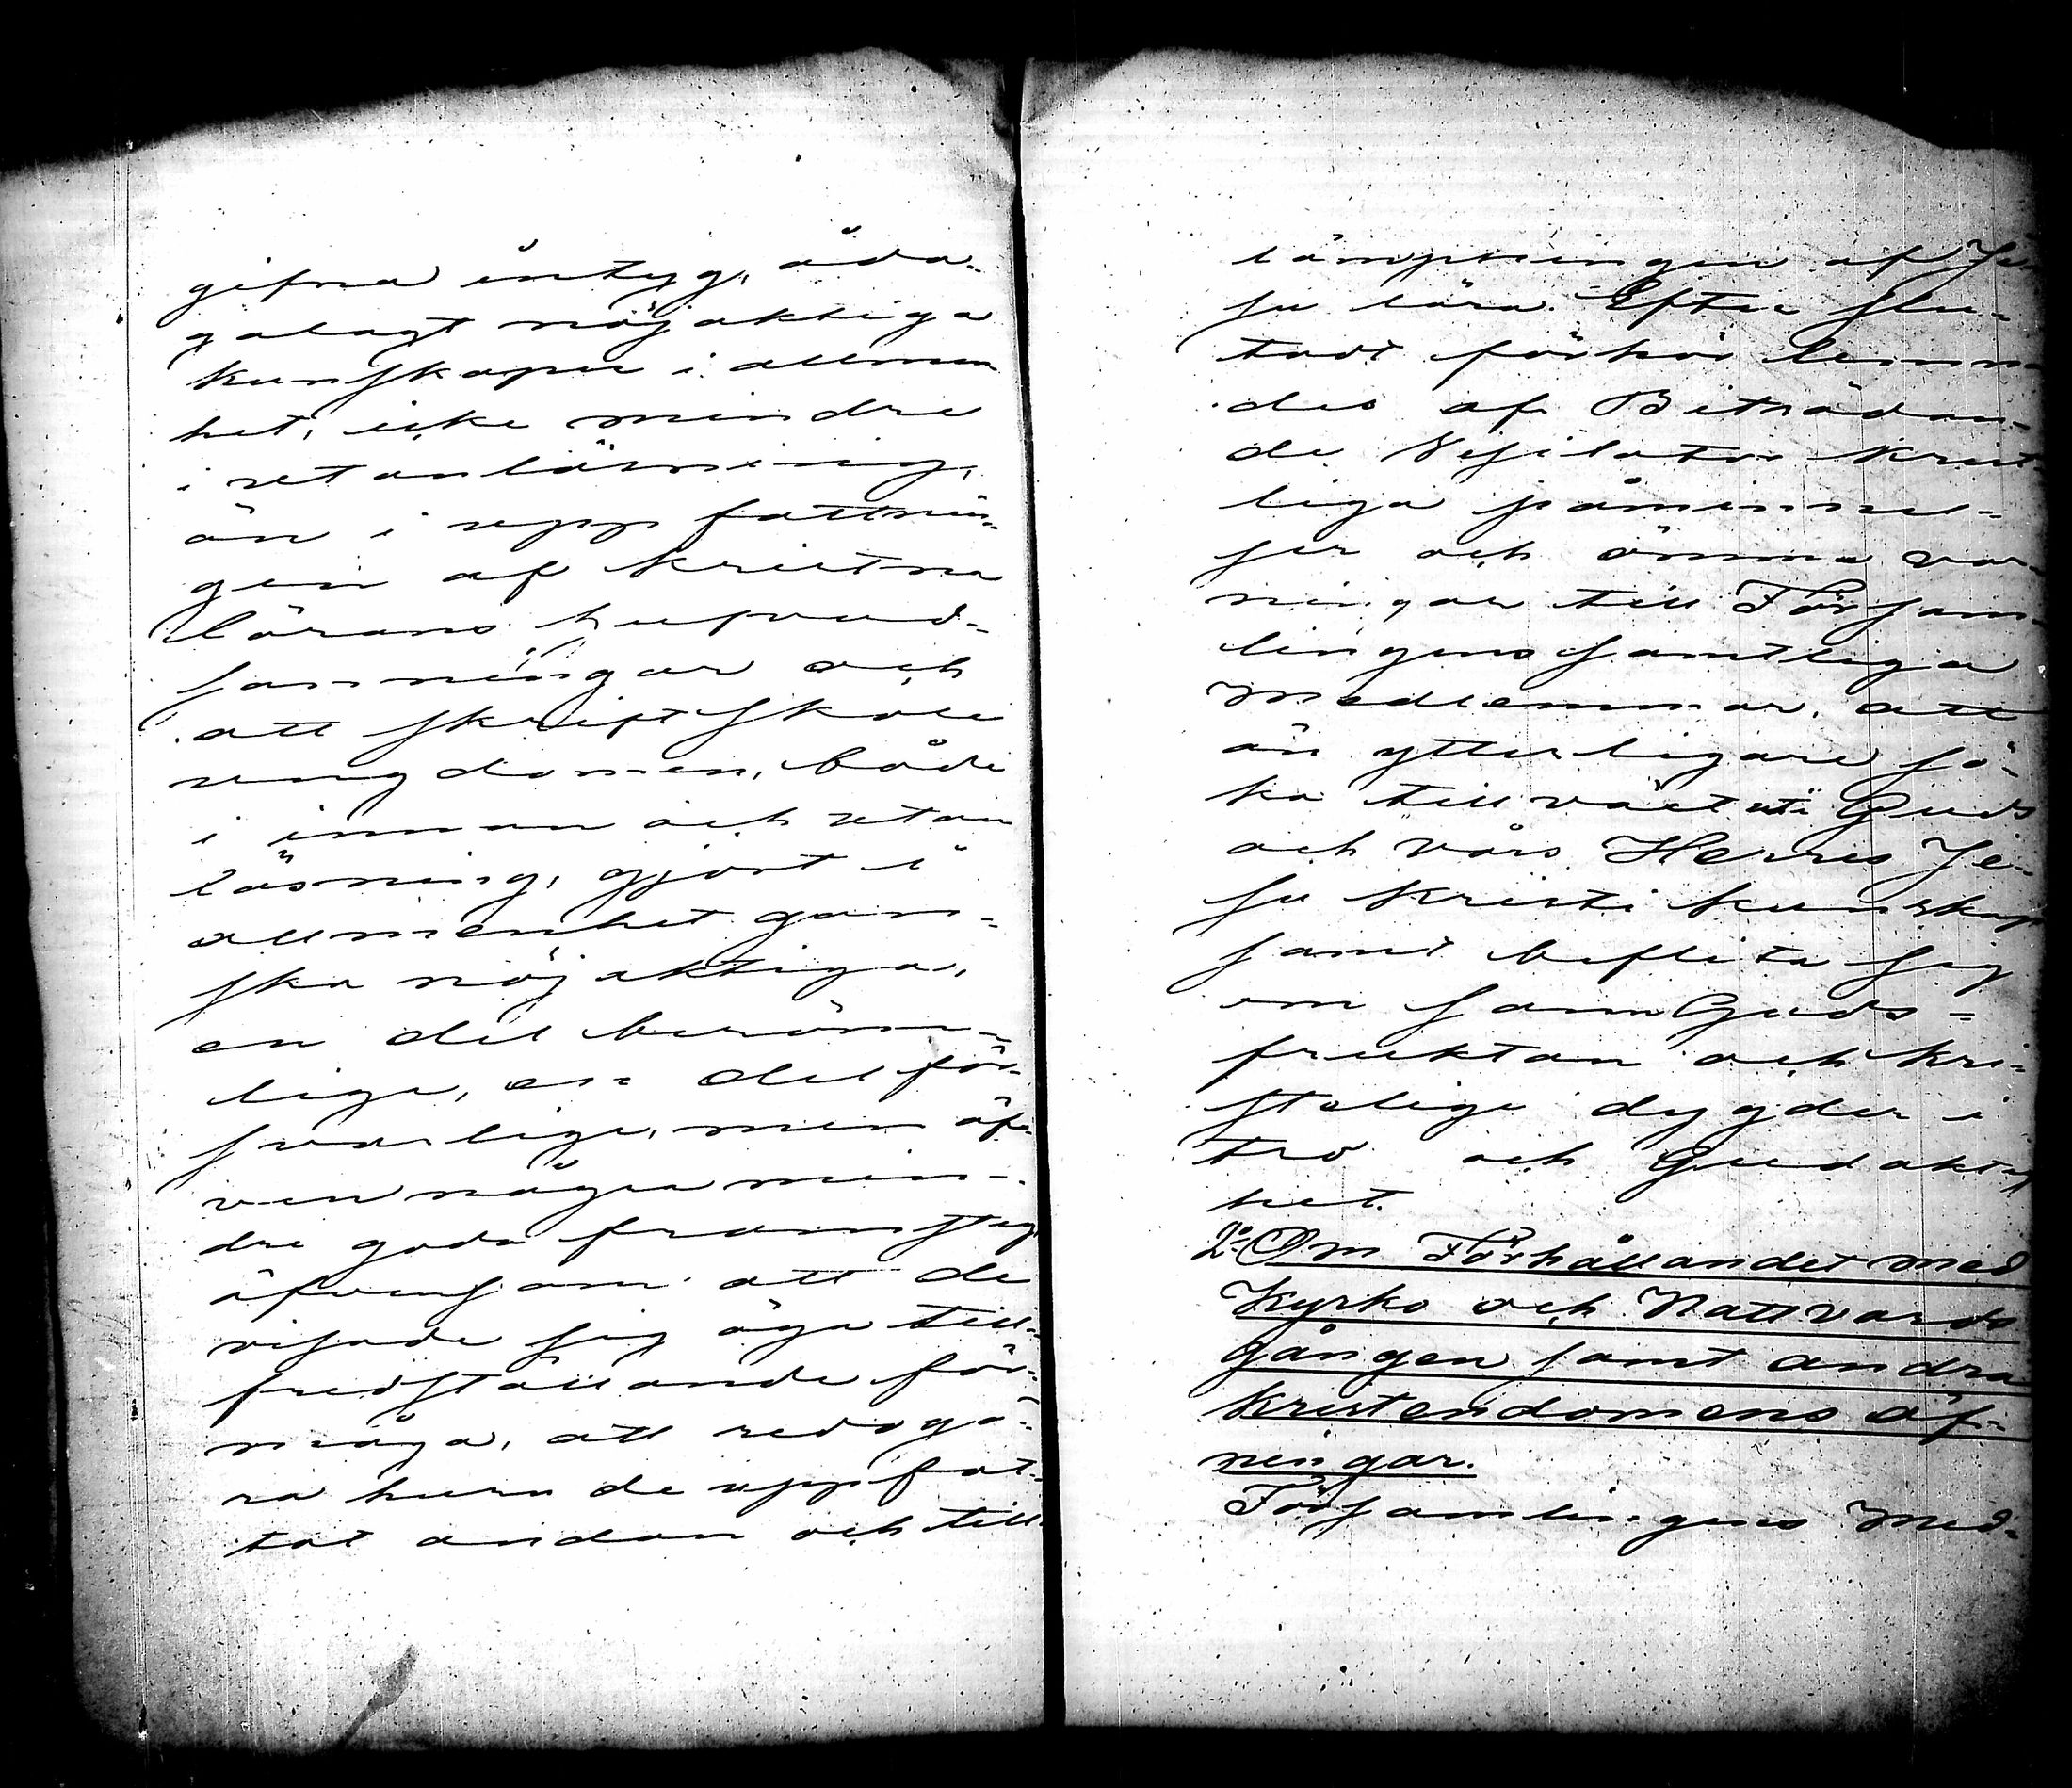 gifna intyg, åda-
galagt nöjaktiga
kunskaper i allmän-
het, icke mindre
i utanläsning,
än i uppfattnin-
gen af kristna
lärans hufvud-
sanningar och
att skriftskole
ungdomen, både
i innan och utan
läsning, gjort i
allmänhet gan-
ska nöjaktiga,
en del beröm-
liga, en del för-
svarliga, men äf-
ven några min-
dre goda framsteg,
äfvensom att de
visade sig äga till-
fredställande för-
måga, att redogö-
ra huru de uppfat-
tat andan och till-
lämpningen af Je-
su lära. Efter slu-
tadt förhör lemna-
des af Biträdan-
de Visitator krist-
liga påminnel-
ser och ömma var-
ningar till Försam-
lingens samtliga
Medlemmar, att
än ytterligare sö-
ka tillväxt uti Guds
och vårs Herres Je-
su Kristi kunskap
samt beflita sig
om sann Guds-
fruktan och kri-
steliga dygder i
tro och Gudaktig
het.
2:o Om Förhållandet med
Kyrko och Nattvards
gången samt andra
kristendomens öf-
ningar.
Församlingens Med-